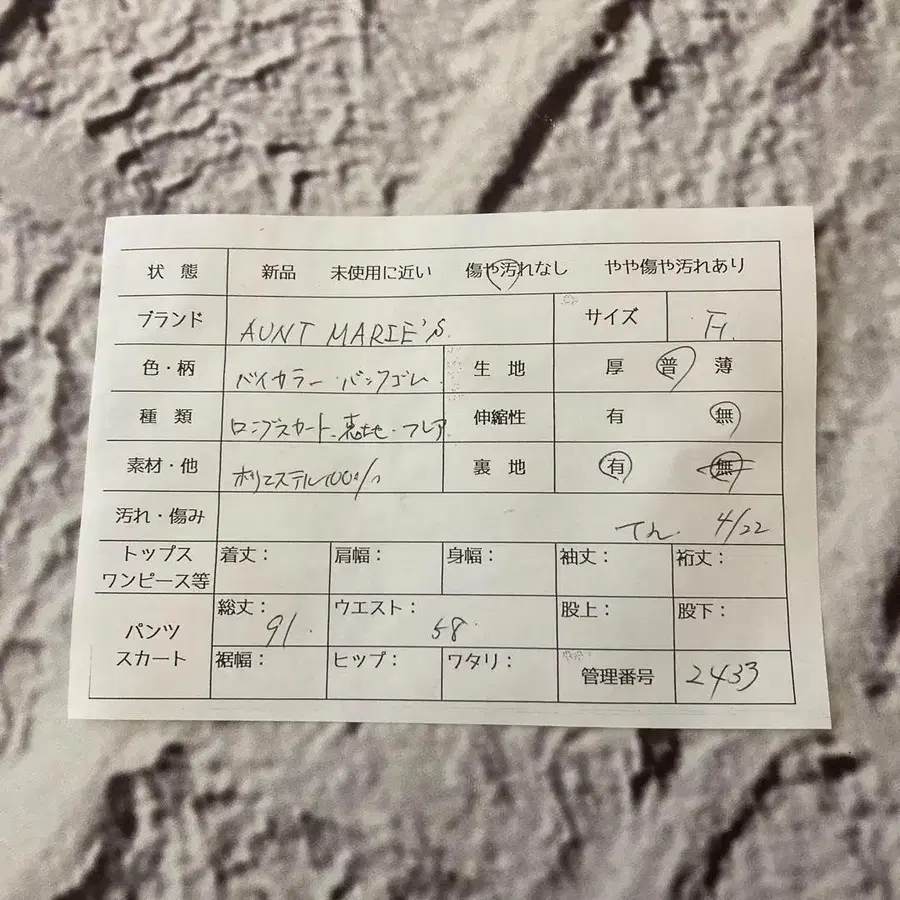 状 態 新品 未使用に近い 傷や汚れなし やや傷や汚れあり
ブランド AUNT MARIE'S. サイズ F.
色・柄 バイカラー・バックゴム 生 地 厚 普 薄
種 類 ロングスカート、裏地・フレア 伸縮性 有 無
素材・他 ポリエステル100% 裏 地 有 無
汚れ・傷み てん. 4/22
トップス ワンピース等 着丈: 肩幅: 身幅: 袖丈: 裄丈:
パンツ スカート 総丈: 91. ウエスト: 58. 股上: 股下:
裾幅: ヒップ: ワタリ: 管理番号 2433